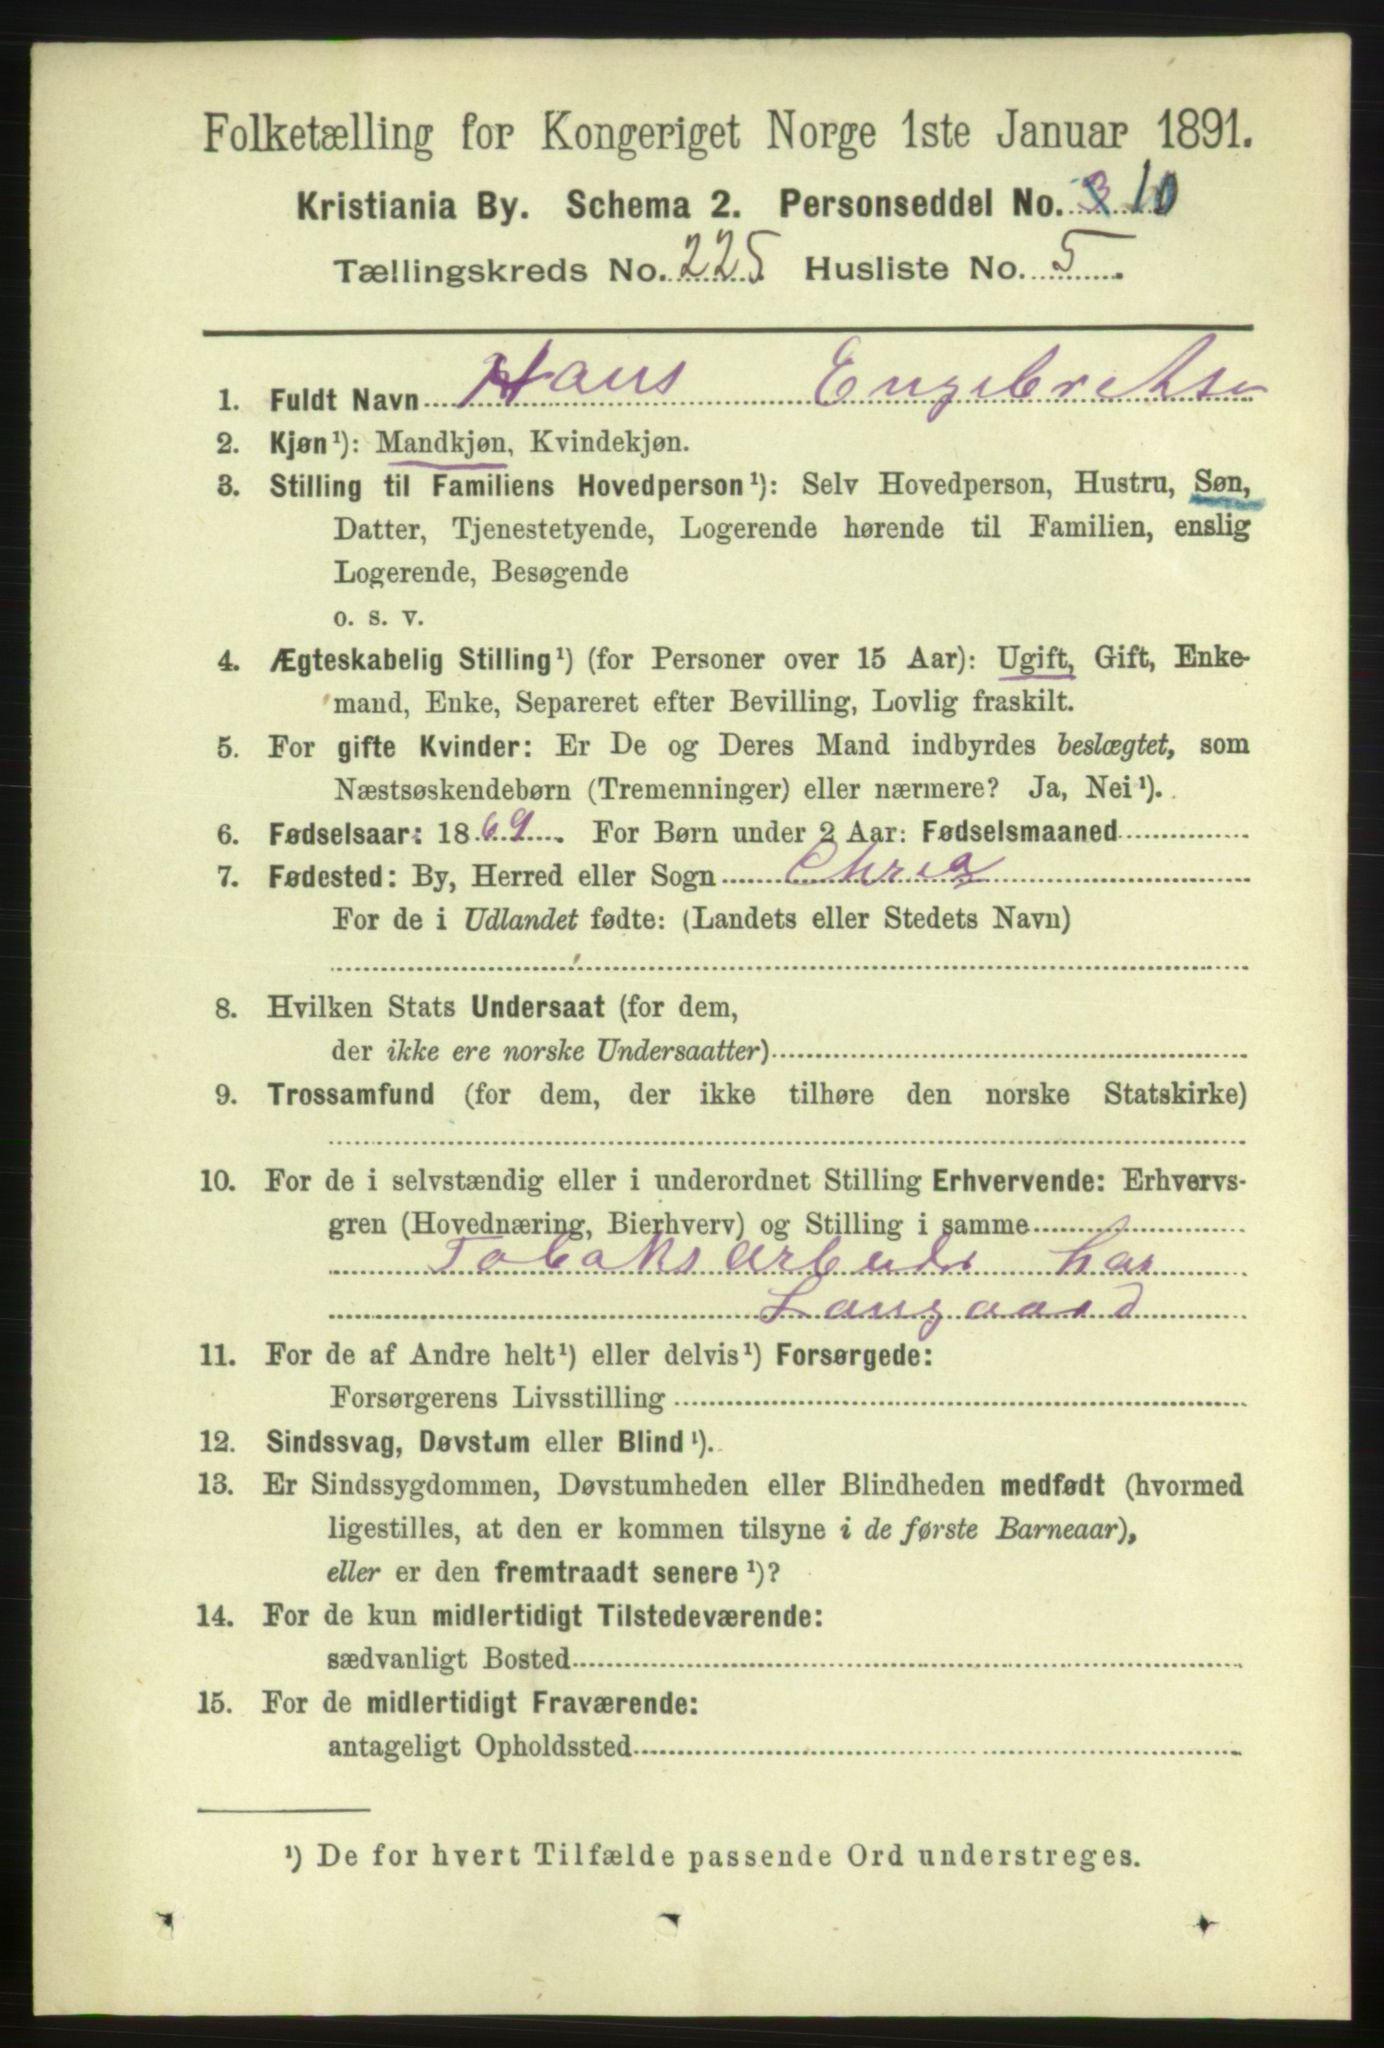 Folketælling for Kongeriget Norge 1ste Januar 1891.
Kristiania By. Schema 2. Personseddel No. 3 10
Tællingskreds No. 225 Husliste No. 5.
1. Fuldt Navn Hans Engebretse
2. Kjøn¹): Mandkjøn, Kvindekjøn.
3. Stilling til Familiens Hovedperson¹): Selv Hovedperson, Hustru, Søn,
Datter, Tjenestetyende, Logerende hørende til Familien, enslig
Logerende, Besøgende
o. s. v.
4. Ægteskabelig Stilling¹) (for Personer over 15 Aar): Ugift, Gift, Enke-
mand, Enke, Separeret efter Bevilling, Lovlig fraskilt.
5. For gifte Kvinder: Er De og Deres Mand indbyrdes beslægtet, som
Næstsøskendebørn (Tremenninger) eller nærmere? Ja, Nei¹).
6. Fødselsaar: 1869. For Børn under 2 Aar: Fødselsmaaned
7. Fødested: By, Herred eller Sogn Chria
For de i Udlandet fødte: (Landets eller Stedets Navn)
8. Hvilken Stats Undersaat (for dem,
der ikke ere norske Undersaatter)
9. Trossamfund (for dem, der ikke tilhøre den norske Statskirke)
10. For de i selvstændig eller i underordnet Stilling Erhvervende: Erhvervs-
gren (Hovednæring, Bierhverv) og Stilling i samme
Tobaksarbeider hos
Langaard
11. For de af Andre helt¹) eller delvis¹) Forsørgede:
Forsørgerens Livsstilling
12. Sindssvag, Døvstum eller Blind¹).
13. Er Sindssygdommen, Døvstumheden eller Blindheden medfødt (hvormed
ligestilles, at den er kommen tilsyne i de første Barneaar),
eller er den fremtraadt senere¹)?
14. For de kun midlertidigt Tilstedeværende:
sædvanligt Bosted
15. For de midlertidigt Fraværende:
antageligt Opholdssted
¹) De for hvert Tilfælde passende Ord understreges.